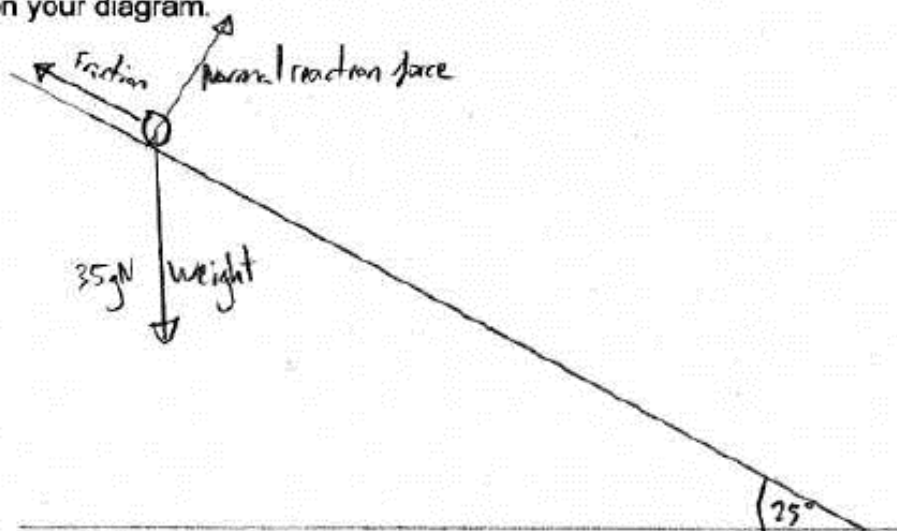 on your diagram.
Friction
normal reaction force
35gN
weight
25°